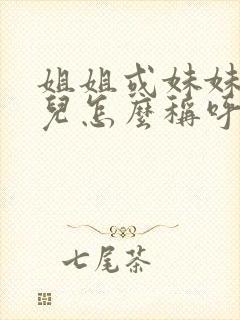 姐姐或妹妹
兒怎麼稱呼
七尾茶